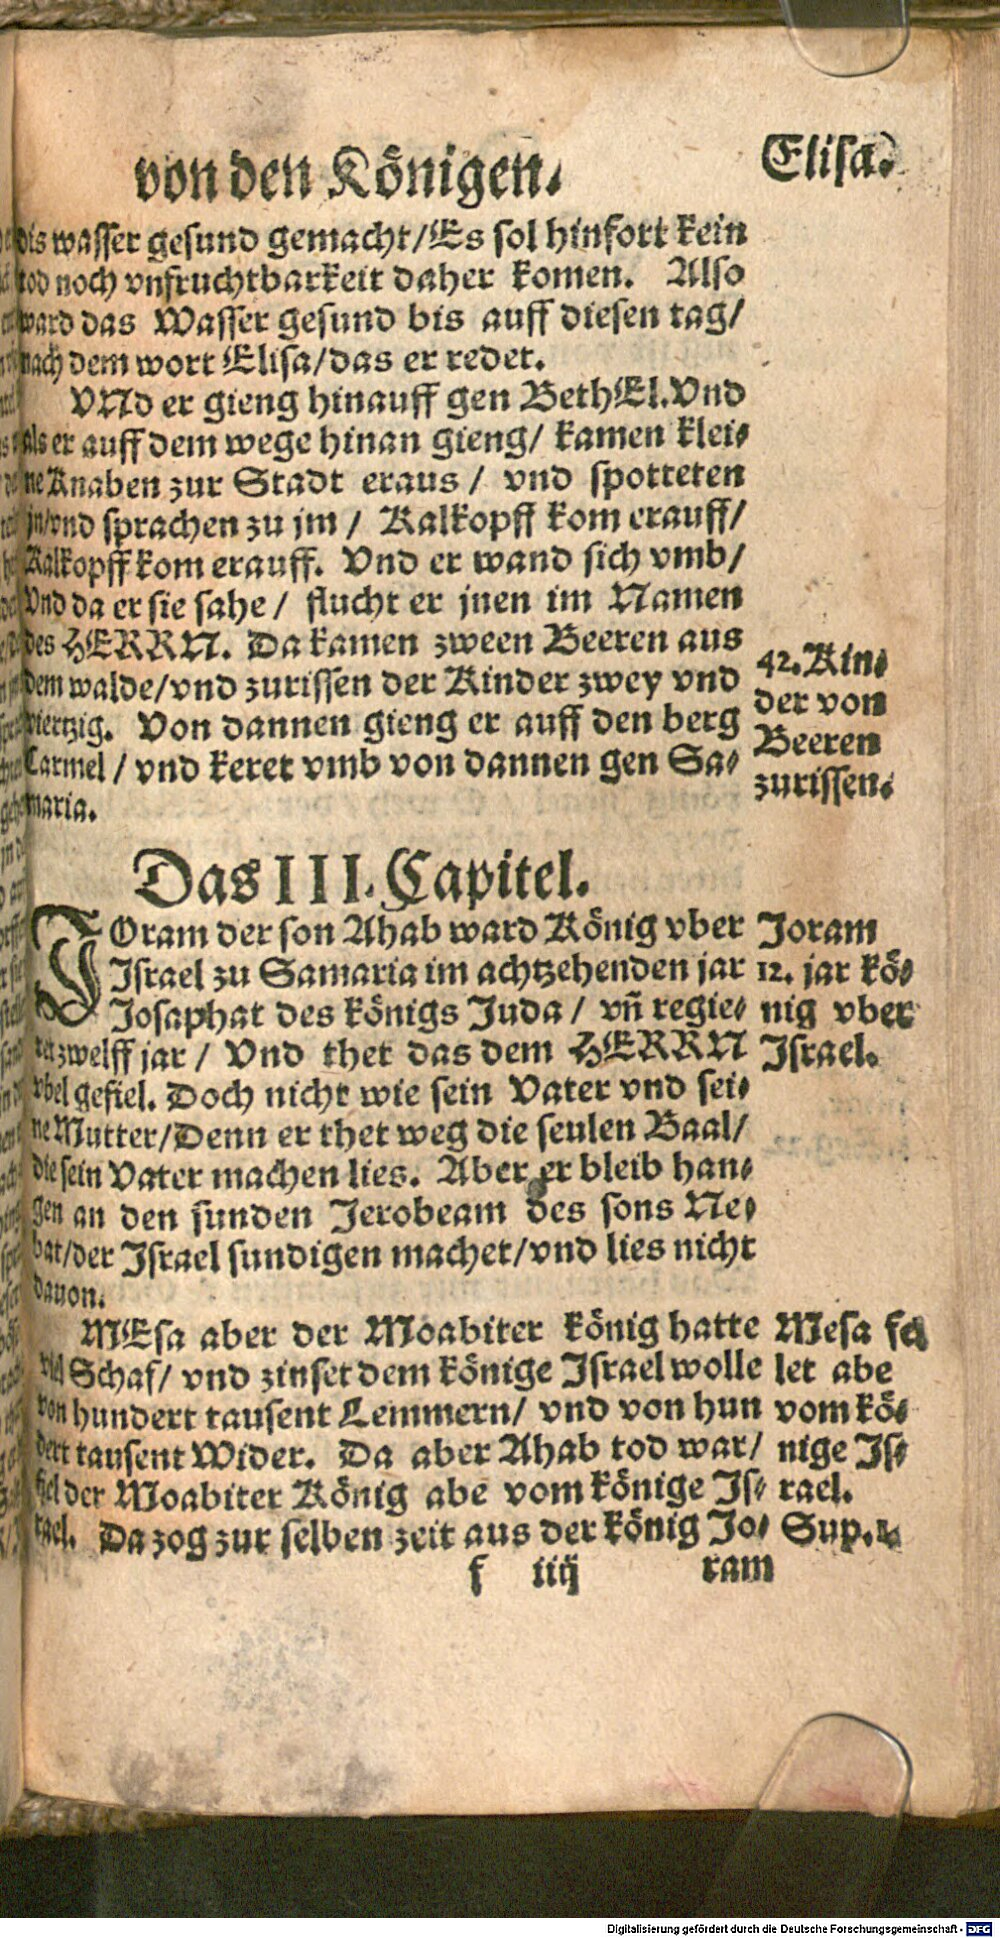 von den Königen.
Elisa.
dis wasser gesund gemacht/Es sol hinfort kein
tod noch vnfruchtbarkeit daher komen. Also
ward das Wasser gesund bis auff diesen tag/
nach dem wort Elisa/das er redet.
VNd er gieng hinauff gen BethEl. Vnd
als er auff dem wege hinan gieng/ kamen klei-
ne Knaben zur Stadt eraus / vnd spotteten
jn/vnd sprachen zu jm / Kalkopff kom erauff/
Kalkopff kom erauff. Vnd er wand sich vmb/
Vnd da er sie sahe / flucht er jnen im Namen
des HERRN. Da kamen zween Beeren aus
dem walde/vnd zurissen der Kinder zwey vnd
viertzig. Von dannen gieng er auff den berg
Carmel / vnd keret vmb von dannen gen Sa-
maria.
42. Kin-
der von
Beeren
zurissen.
Das III. Capitel.
JOram der son Ahab ward König vber
Israel zu Samaria im achtzehenden jar
Josaphat des königs Juda / vñ regie-
ret zwelff jar / Vnd thet das dem HERRN
vbel gefiel. Doch nicht wie sein Vater vnd sei-
ne Mutter/Denn er thet weg die seulen Baal/
die sein Vater machen lies. Aber er bleib han-
gen an den sunden Jerobeam des sons Ne-
bat/der Israel sundigen machet/vnd lies nicht
dauon.
Joram
12. jar kö-
nig vber
Israel.
MEsa aber der Moabiter könig hatte
viel Schaf/ vnd zinset dem könige Israel wolle
von hundert tausent Lemmern/ vnd von hun
dert tausent Wider. Da aber Ahab tod war/
fiel der Moabiter König abe vom könige Is-
rael. Da zog zur selben zeit aus der könig Jo-
Mesa fel
let abe
vom kö-
nige Is-
rael.
Sup. 1.
f iiij
ram
Digitalisierung gefördert durch die Deutsche Forschungsgemeinschaft - DFG